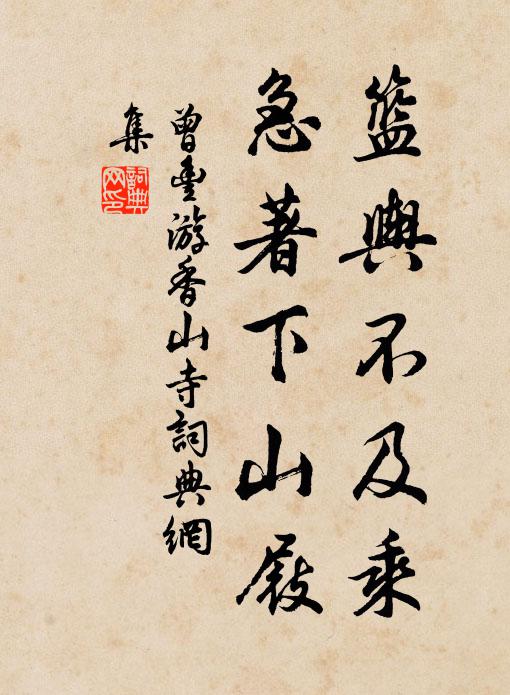 籃輿不及乘
急著下山屐
曾豐游香山寺詞典網
集
詞典
网印